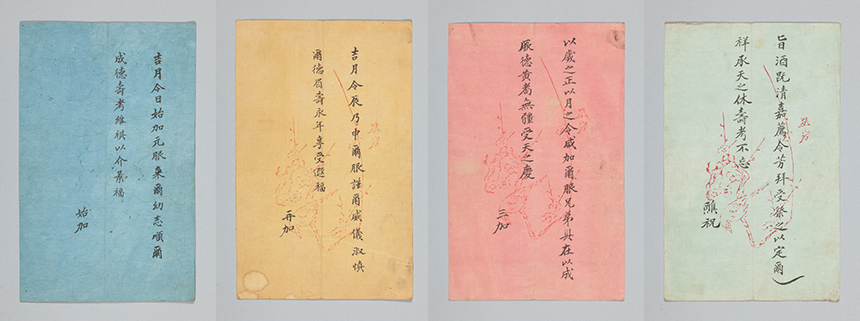 吉月令日始加元服棄爾幼志順爾
成德壽考維祺以介景福
始加
吉月令辰乃申爾服謹爾威儀淑慎
爾德眉壽永年享受遐福
再加
以歲之正以月之令咸加爾服兄弟具在以成
厥德黃耇無疆受天之慶
三加
旨酒旣清嘉薦令芳拜受祭之以定爾
祥承天之休壽考不忘
醮祝